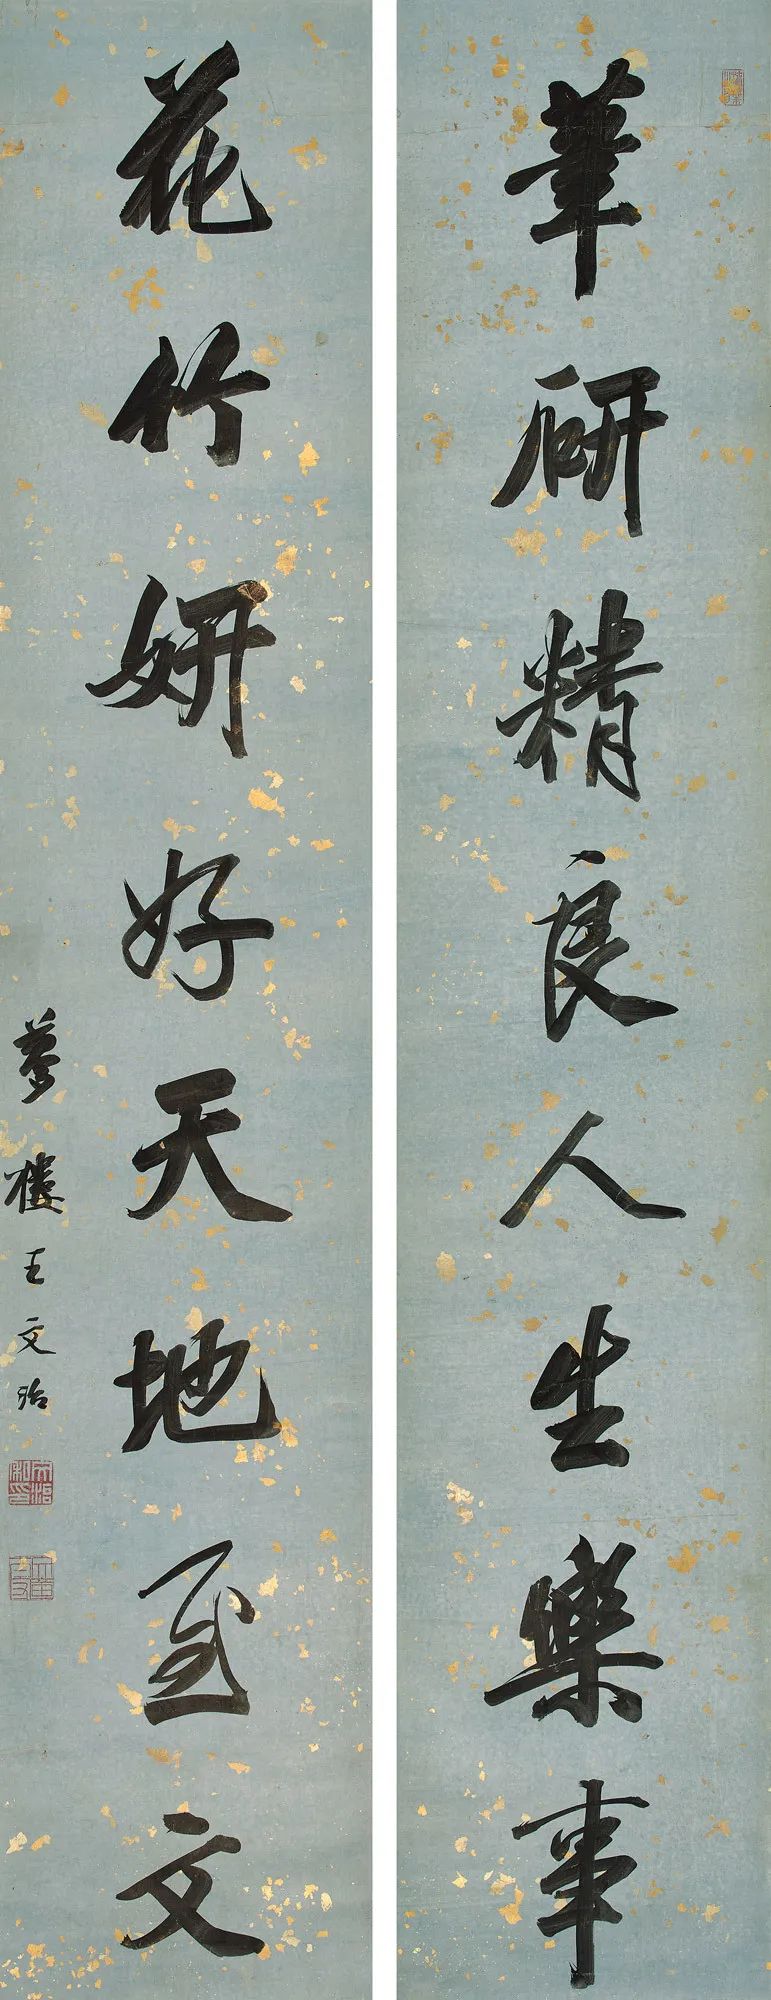 筆研精良人生樂事
花竹妍好天地至文
夢樓王文治